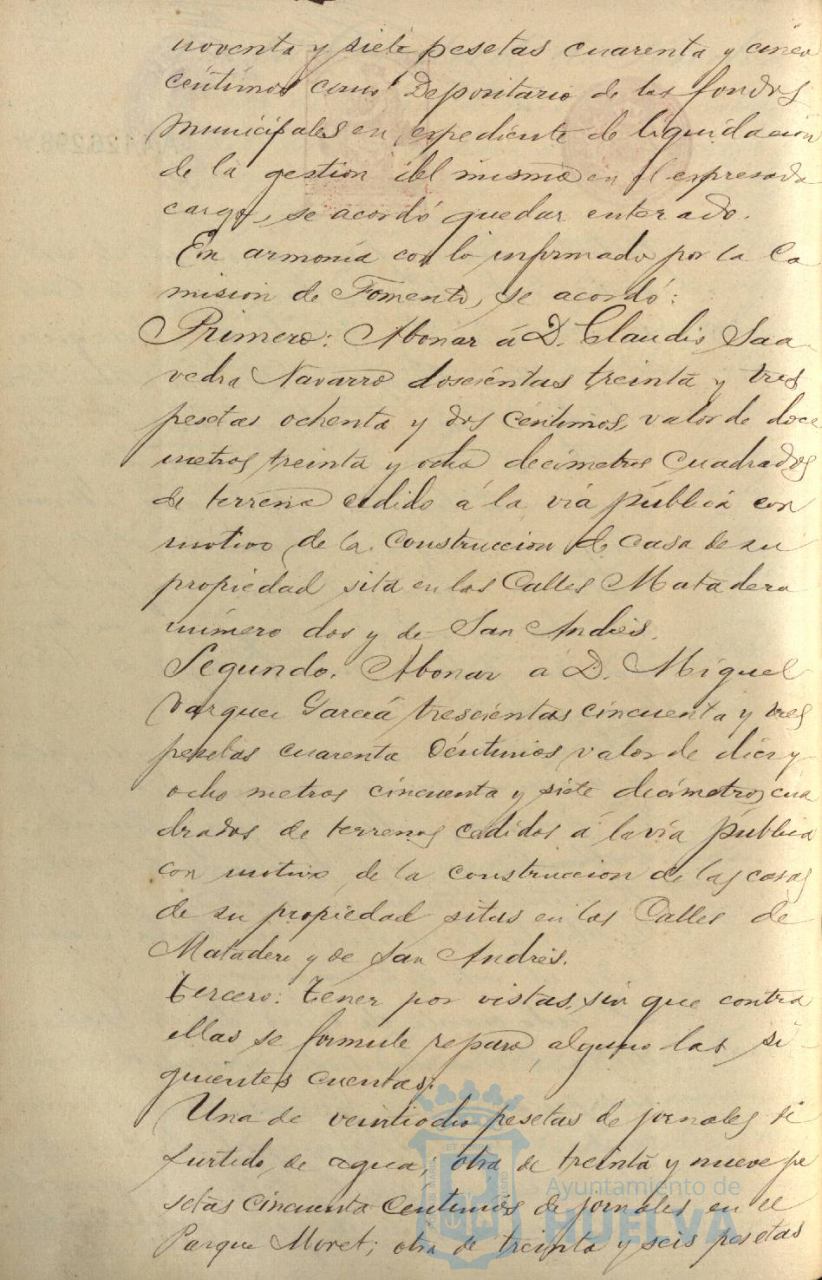 noventa y siete pesetas cuarenta y cinco
céntimos como Depositario de los fondos
municipales en expediente de liquidación
de la gestion del mismo en el expresado
cargo, se acordó quedar enterado.
En armonía con lo informado por la Co
mision de Fomento, se acordó:
Primero: Abonar á D. Claudio Saa
vedra Navarro doscientas treinta y tres
pesetas ochenta y dos céntimos, valor de doce
metros treinta y ocho decímetros cuadrados
de terreno cedido á la vía pública con
motivo de la construccion de casa de su
propiedad sita en las Calles Matadero
número dos y de San Andrés.
Segundo. Abonar á D. Miguel
Vazquez García trescientas cincuenta y tres
pesetas cuarenta céntimos valor de diez y
ocho metros cincuenta y siete decímetros cua
drados de terrenos cedidos á la vía pública
con motivo de la construccion de las casas
de su propiedad sitas en las Calles de
Matadero y de San Andrés.
Tercero: Tener por vistas, sin que contra
ellas se formule reparo alguno las si-
guientes cuentas:
Una de pesetas de jornales
surtido de agua; otra de treinta y nueve pe
setas cincuenta céntimos de jornales en el
Parque Moret; otra de treinta y seis pesetas
Ayuntamiento de
HUELVA